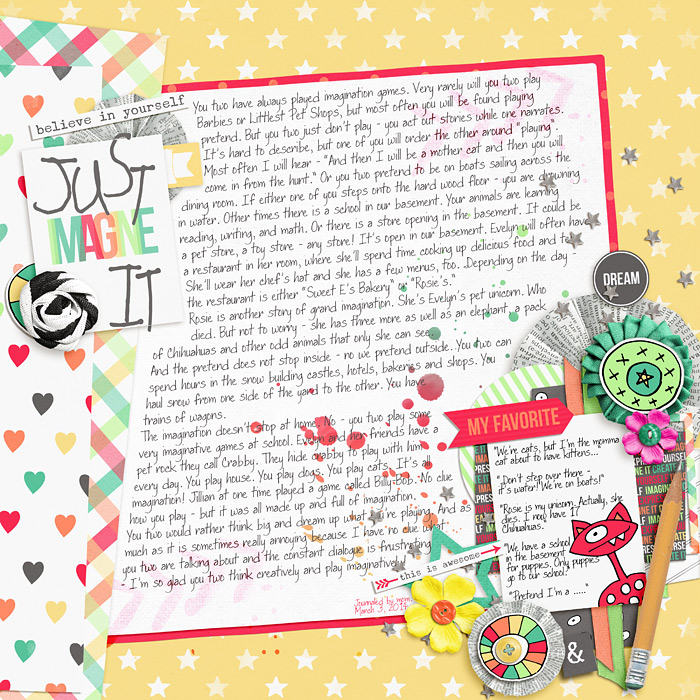 believe in yourself
JUST
IMAGINE
IT
You two have always played imagination games. Very rarely will you two play
Barbies or Littlest Pet Shops, but most often you will be found playing
pretend. But you two just don't play - you act out stories while one narrates.
It's hard to describe, but one of you will order the other around "playing".
Most often I will hear - "And then I will be a mother cat and then you will
come in from the hunt." Or you two pretend to be on boats sailing across the
dining room. If either one of you steps onto the hard wood floor - you are drowning
in water. Other times there is a school in our basement. Your animals are learning
reading, writing, and math. Or there is a store opening in the basement. It could be
a pet store, a toy store - any store! It's open in our basement. Evelyn will often have
a restaurant in her room, where she'll spend time cooking up delicious food and to
She'll wear her chef's hat and she has a few menus, too. Depending on the day -
the restaurant is either "Sweet E's Bakery" or "Rosie's."
Rosie is another story of grand imagination. She's Evelyn's pet unicorn. Who
died. But not to worry - she has three more as well as an elephant, a pack
of Chihuahuas and other odd animals that only she can see.
And the pretend does not stop inside - no we pretend outside. You two can
spend hours in the snow building castles, hotels, bakeries and shops. You
haul snow from one side of the yard to the other. You have
trains of wagons.
The imagination doesn't stop at home. No - you two play some
very imaginative games at school. Evelyn and her friends have a
pet rock they call Crabby. They hide crabby to play with him
every day. You play house. You play dogs. You play cats. It's all
imagination! Jillian at one time played a game called Billy-Bob. No clue
how you play - but it was all made up and full of imagination.
You two would rather think big and dream up what you're playing. And as
much as it is sometimes really annoying because I have no clue what
you two are talking about and the constant dialogue is frustrating
- I'm so glad you two think creatively and play imaginatively.
Journaled by mom,
March 3, 2014
DREAM
MY FAVORITE
"We're cats, but I'm the momma
cat about to have kittens...
"Don't step over there -
it's water! We're on boats!"
Rosie is my unicorn. Actually, she
dies. I now have 17
Chihuahuas.
"We have a school
in the basement
for puppies. Only puppies
go to our school."
"Pretend I'm a .....”
this is awesome
&